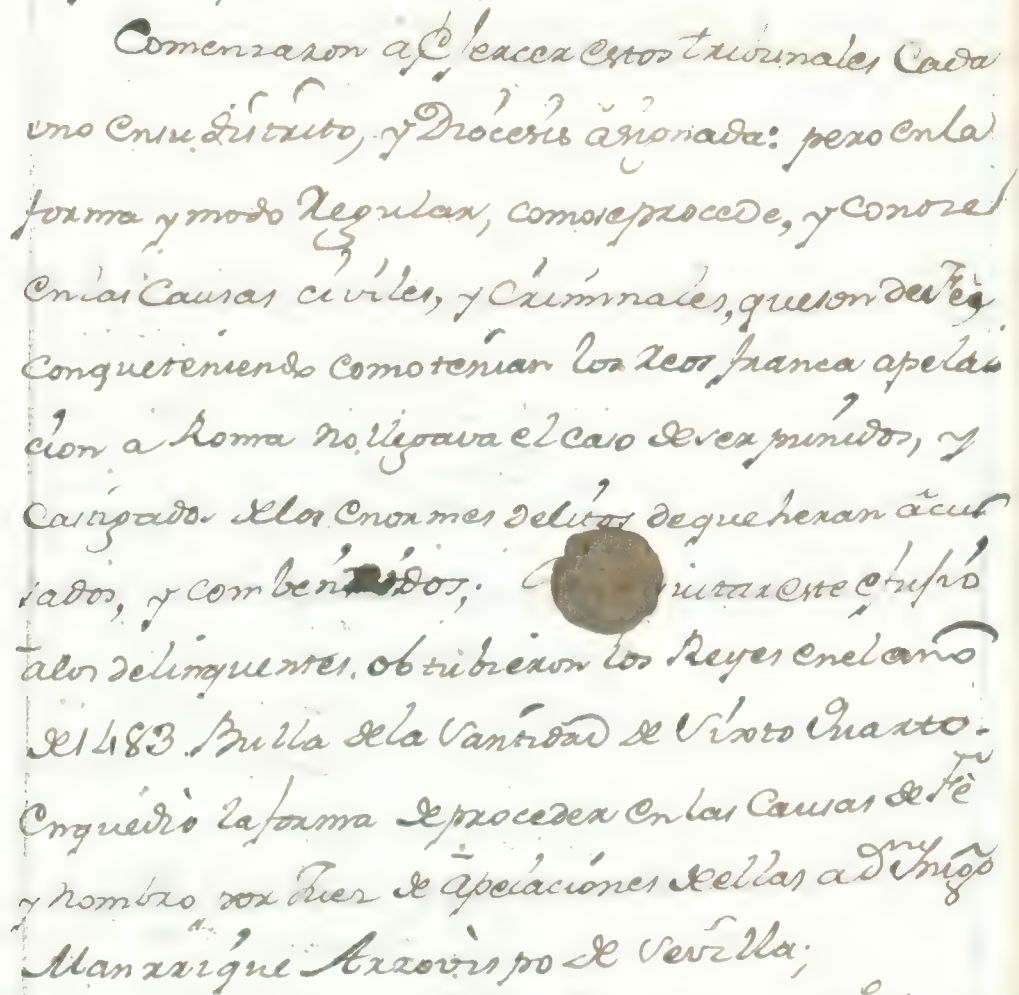 Comenzaron a Exercer estos tribunales Cada
uno en su distrito, y Diocesis asignada: pero en la
forma y modo Regular, como se procede, y Conoze
en las Causas civiles, y Criminales, que son de Fee,
Con que teniendo como tenian los Reos franca apela
cion a Roma no llegava el caso de ser punidos, y
Castigados de los Enormes delitos de que heran acus
sados, y combencidos; quitar este efugio
a los delinquentes. obtubieron los Reyes en el año
de 1483. Bulla de la Santidad de Sixto Quarto.
en que dió la forma de proceder en las Causas de Fè
y nombro por Juez de apelaciones de ellas a Dn Yñigo
Manrrique Arzovispo de Sevilla;